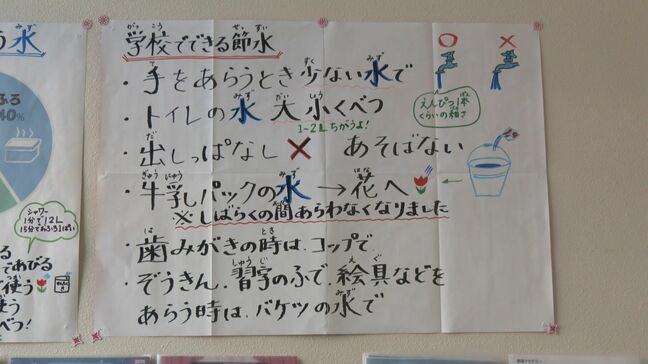 う水
ふろ
40%
シャワー
1分で12L
15分でおふろ1ぱい
る
であびる
使う
使う
べつ!
学校でできる節水
・手をあらうとき少ない水で
えんぴつ1本
くらいの細さ
・トイレの水 大小くべつ
1~2Lちがうよ!
・出しっぱなし× あそばない
・牛乳パックの水→花へ
※しばらくの間あらわなくなりました
・歯みがきの時は、コップで
・ぞうきん、習字のふで、絵具などを
あらう時は、バケツの水で